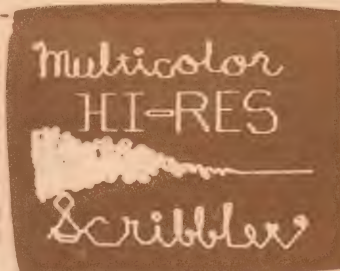 Multicolor
HI-RES
Scribbler